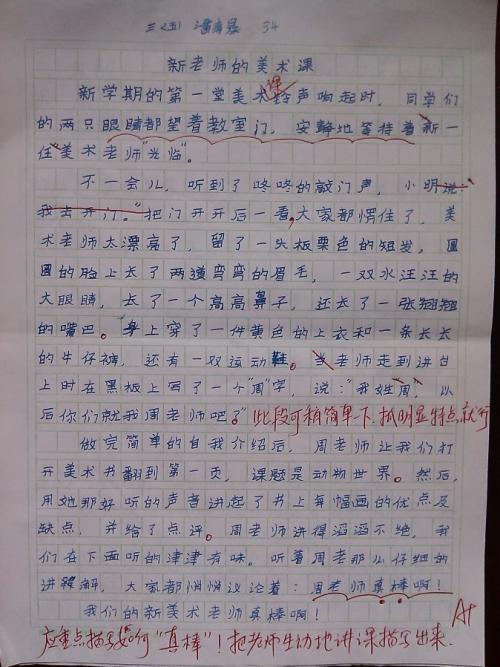 三(五) 34
新老师的美术课
课
新学期的第一堂美术铃声响起时，同学们
的两只眼睛都望着教室门，安静地等待着新一
任美术老师“光临”。
不一会儿，听到了咚咚的敲门声，小明说：“
我去开门。”把门开开后一看，大家都愣住了，美
术老师太漂亮了，留了一头板栗色的短发，圆
圆的脸上长了两道弯弯的眉毛，一双水汪汪的
大眼睛，长了一个高高鼻子，还长了一张翘翘
的嘴巴。身上穿了一件黄色的上衣和一条长长
的牛仔裤，还有一双运动鞋。当老师走到讲台
上时在黑板上写了一个“周”字，说：“我姓周”，以
后你们就我周老师吧。”此段可稍简单一下，抓明显特点就行
做完简单的自我介绍后，周老师让我们打
开美术书翻到第一页，课题是动物世界。然后，
用她那好听的声音讲起了书上每幅画的优点及
缺点，并给了点评。周老师讲得滔滔不绝，我
们在下面听的津津有味。听着周老那么仔细的
讲解，大家都悄悄议论着：周老师真棒啊！
我们的新美术老师真棒啊！
A+
应重点描写如何“真棒”！把老师生动地讲课描写出来.